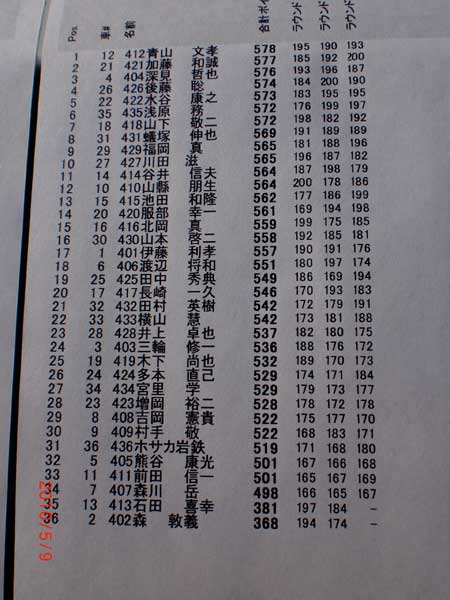 Pos. 車# 名前 合計ポイ ラウンド ラウンド ラウンド
1 12 412 青山 文孝 578 195 190 193
2 21 421 加藤 和誠 577 185 192 200
3 4 404 深見 哲也 576 193 196 187
4 26 426 後藤 聡 574 184 200 190
5 22 422 水谷 康之 573 183 195 195
6 35 435 浅原 務 572 176 199 197
7 18 418 山下 敬二 572 198 182 192
8 31 431 蟻塚 伸也 569 191 189 189
9 29 429 福岡 真 565 181 188 196
10 27 427 川田 滋 565 196 187 182
11 14 414 谷井 信夫 564 187 198 179
12 10 410 山縣 朋生 564 200 178 186
13 15 415 池田 和隆 562 177 186 199
14 20 420 服部 幸一 561 169 194 198
15 16 416 北岡 真 559 199 175 185
16 30 430 山本 啓二 558 192 185 181
17 1 401 伊藤 利孝 557 190 191 176
18 6 406 渡辺 将和 551 180 197 174
19 25 425 田中 秀典 549 186 169 194
20 17 417 長崎 一久 546 170 193 183
21 32 432 田村 英樹 542 172 179 191
22 33 433 横山 慧 542 173 181 188
23 28 428 井上 卓也 537 182 180 175
24 3 403 三輪 修一 536 188 176 172
25 19 419 木下 尚也 532 189 170 173
26 24 424 多本 直己 529 174 171 184
27 34 434 宮里 学 529 179 173 177
28 23 423 増岡 裕二 528 178 172 178
29 8 408 吉岡 憲貴 522 175 177 170
30 9 409 村手 敬 522 168 183 171
31 36 436 ホサカ岩鉄 519 171 168 180
32 5 405 熊谷 康光 501 167 166 168
33 11 411 前田 信一 501 165 167 169
34 7 407 森川 岳 498 166 165 167
35 13 413 石田 喜幸 381 197 184 -
36 2 402 森 敦義 368 194 174 -
2010/5/9